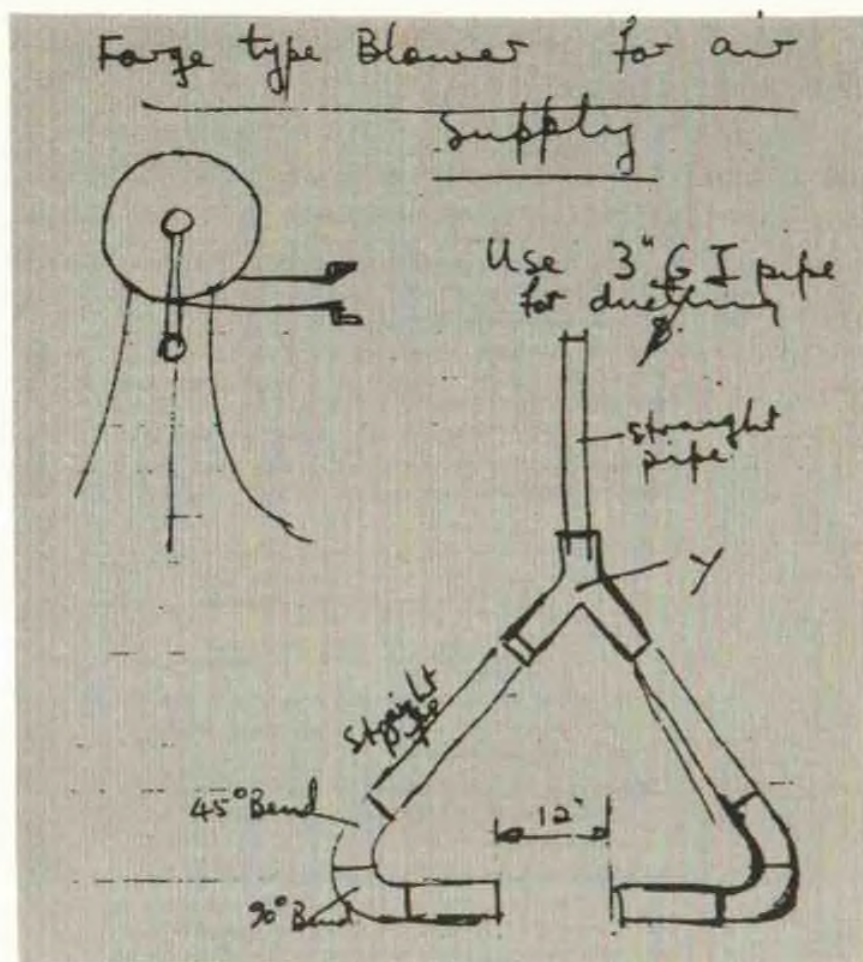 Forge type Blower for air
Supply
Use 3" G I pipe
for ducting
straight
pipe
Y
straight
pipe
45° Bend
12"
90° Bend